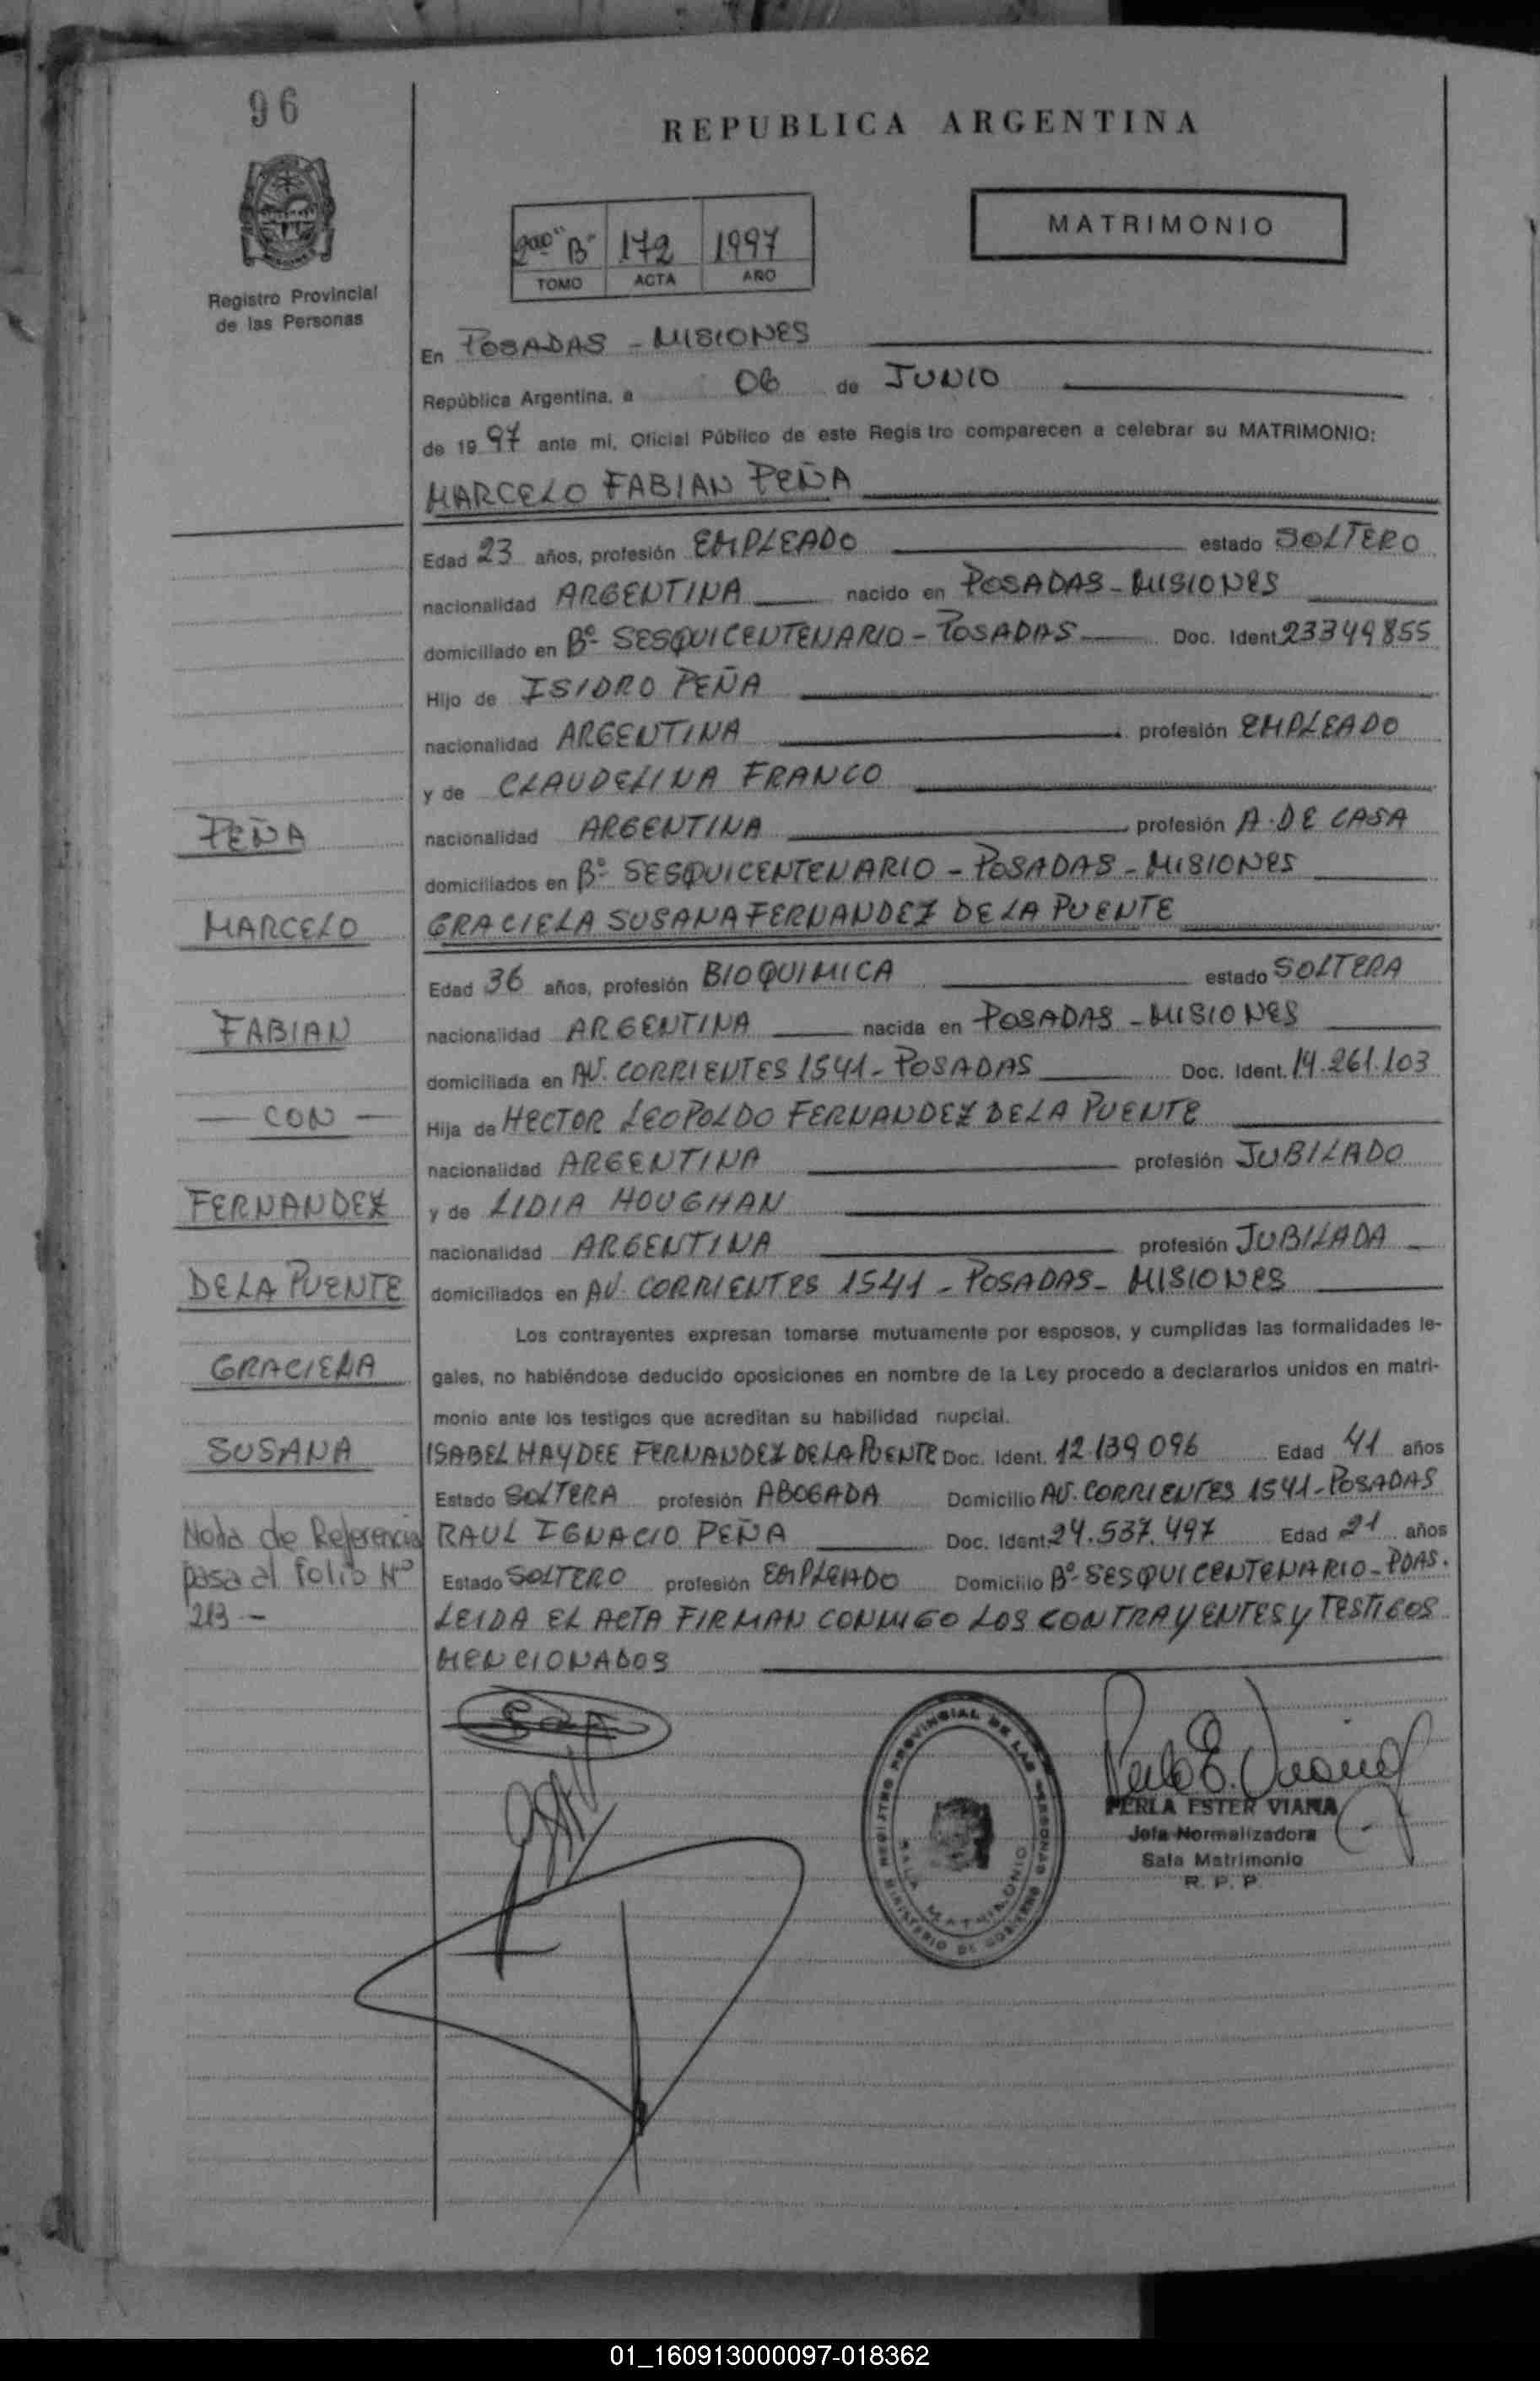 96
REPUBLICA ARGENTINA
MATRIMONIO
2do "B" 172 1997
TOMO ACTA AÑO
Registro Provincial
de las Personas
En POSADAS - MISIONES
República Argentina, a 06 de JUNIO
de 1997 ante mi, Oficial Público de este Registro comparecen a celebrar su MATRIMONIO:
MARCELO FABIAN PEÑA
Edad 23 años, profesión EMPLEADO estado SOLTERO
nacionalidad ARGENTINA nacido en POSADAS - MISIONES
domiciliado en Bº SESQUICENTENARIO - POSADAS Doc. Ident. 23349855
Hijo de ISIDRO PEÑA
nacionalidad ARGENTINA profesión EMPLEADO
y de CLAUDELINA FRANCO
nacionalidad ARGENTINA profesión A. DE CASA
domiciliados en Bº SESQUICENTENARIO - POSADAS - MISIONES
GRACIELA SUSANA FERNANDEZ DE LA PUENTE
Edad 36 años, profesión BIOQUIMICA estado SOLTERA
nacionalidad ARGENTINA nacida en POSADAS - MISIONES
domiciliada en AV. CORRIENTES 1541 - POSADAS Doc. Ident. 14.261.103
Hija de HECTOR LEOPOLDO FERNANDEZ DE LA PUENTE
nacionalidad ARGENTINA profesión JUBILADO
y de LIDIA HOUGHAN
nacionalidad ARGENTINA profesión JUBILADA
domiciliados en AV. CORRIENTES 1541 - POSADAS - MISIONES
Los contrayentes expresan tomarse mutuamente por esposos, y cumplidas las formalidades le-
gales, no habiéndose deducido oposiciones en nombre de la Ley procedo a declararlos unidos en matri-
monio ante los testigos que acreditan su habilidad nupcial.
ISABEL HAYDEE FERNANDEZ DE LA PUENTE Doc. Ident. 12.139.096 Edad 41 años
Estado SOLTERA profesión ABOGADA Domicilio AV. CORRIENTES 1541 - POSADAS
RAUL IGNACIO PEÑA Doc. Ident. 24.537.497 Edad 21 años
Estado SOLTERO profesión EMPLEADO Domicilio Bº SESQUICENTENARIO - PDAS.
LEIDA EL ACTA FIRMAN CONMIGO LOS CONTRAYENTES Y TESTIGOS
MENCIONADOS
PEÑA
MARCELO
FABIAN
- CON -
FERNANDEZ
DE LA PUENTE
GRACIELA
SUSANA
Nota de Referencia
pasa al folio Nº
213 -
REGISTRO PROVINCIAL DE LAS PERSONAS
MINISTERIO DE GOBIERNO
SALA MATRIMONIO
PERLA ESTER VIANA
Jefa Normalizadora
Sala Matrimonio
R. P. P.
01_160913000097-018362